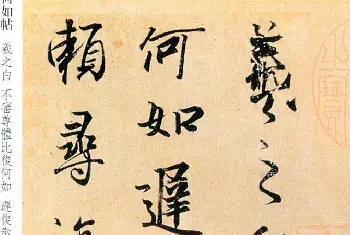 羲之
何如遲
賴尋
如帖 羲之白 不審尊體比復何如 遲復